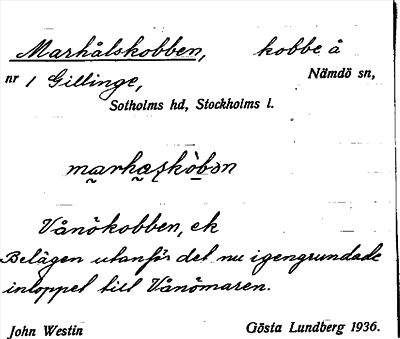 Marhålskobben, kobbe å
nr 1 Gillinge, Nämdö sn,
Sotholms hd, Stockholms l.
Vånökobben, ek
Belägen utanför det nu igengrundade
inloppet till Vånömaren.
John Westin Gösta Lundberg 1936.